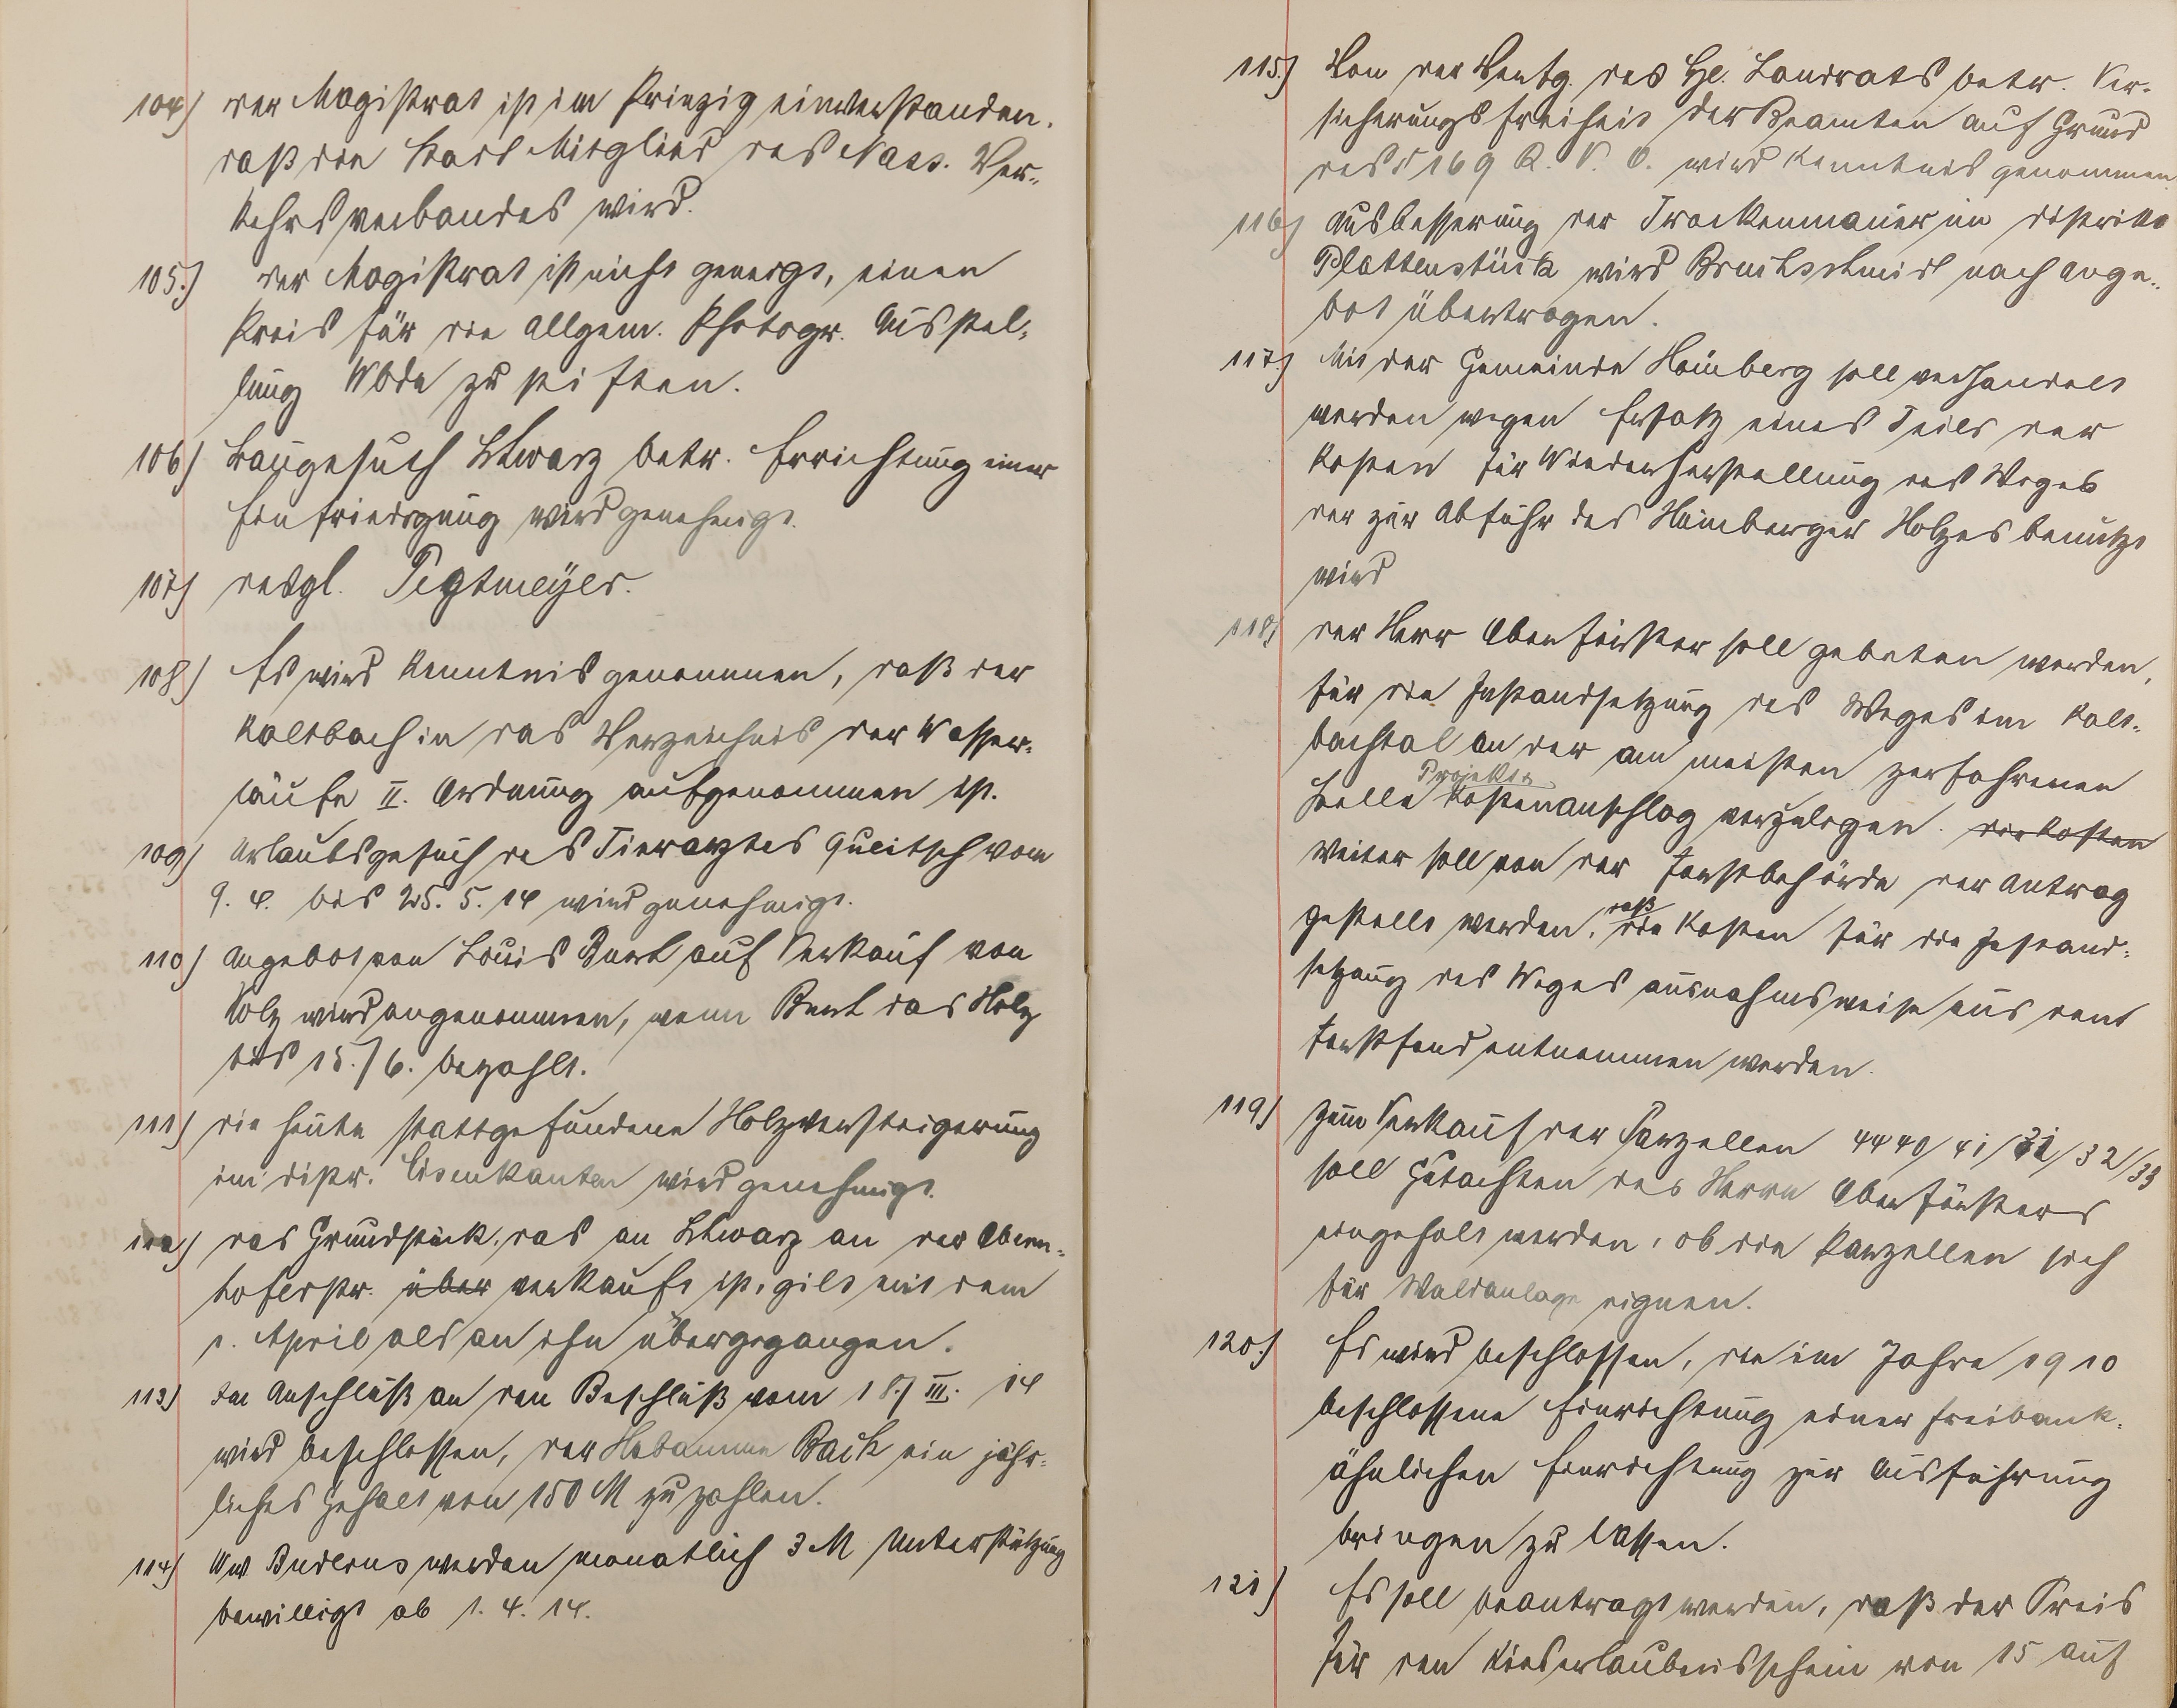 104) der Magistrat ist im Prinzip einverstanden,
daß die Stadt Mitglied des Nass. Ver-
kehrsverbandes wird.
105.) der Magistrat ist nicht geneigt, einen
Preis für die Allgem. Photogr. Ausstel-
lung Wbdn zu stiften.
106) Baugesuch Schwarz betr. Errichtung einer
Einfriedigung wird genehmigt.
107) desgl. Pegtmeyer.
108) Es wird Kenntnis genommen, daß der
Kaltbach in das Verzeichnis der Wasser-
läufe II. Ordnung aufgenommen ist.
109) Urlaubsgesuch des Tierarztes Queitsch vom
9. 4. bis 25. 5. 14 wird genehmigt.
110) Angebot von Louis Bert auf Verkauf von
Holz wird angenommen, wenn Bert das Holz
bis 15./6. bezahlt.
111) die heute stattgefundene Holzversteigerung
im distr. Eisenkanten wird genehmigt.
112) das Grundstück, das an Schwarz an der Obern-
hoferstr. über verkauft ist, gilt mit dem
1. April als an ihn übergegangen.
113) Im Anschluß an den Beschluß vom 18./III. 14
wird beschlossen, der Hebamme Back ein jähr-
liches Gehalt von 150 M zu zahlen.
114) Ww. Buderus werden monatlich 3 M Unterstützung
bewilligt ab 1. 4. 14.
115.) Von der Verfg. des H. Landrats betr. Ver-
sicherungsfreiheit der Beamten auf Grund
des § 169 R. V. O. wird Kenntnis genommen.
116) Ausbesserung der Trockenmauer im distrikt
Plattenstück wird Bruchschmidt nach Ange-
bot übertragen.
117.) Mit der Gemeinde Hömberg soll verhandelt
werden wegen Ersatz eines Teils der
Kosten für Wiederherstellung des Weges
der zur Abfuhr des Hömberger Holzes benutzt
wird
118) der Herr Oberförster soll gebeten werden,
für die Instandsetzung des Weges im Kalt-
bachtal an der am meisten zerfahrenen
Projekt u.
Stelle Kostenanschlag vorzulegen. die Kosten
Weiter soll von der Forstbehörde der Antrag
daß
gestellt werden, die Kosten für die Instand-
setzung des Weges ausnahmsweise aus dem
Forstfond entnommen werden.
119) Zum Verkauf der Parzellen 4440/41/31/32/33
soll Gutachten des Herrn Oberförsters
eingeholt werden, ob die Parzellen sich
für Waldanlage eignen.
120.) Es wird beschlossen, die im Jahre 1910
beschlossene Einrichtung einer freibank-
ähnlichen Einrichtung zur Ausführung
bringen zu lassen.
121) Es soll beantragt werden, daß der Preis
für den Kieserlaubnisschein von 15 auf